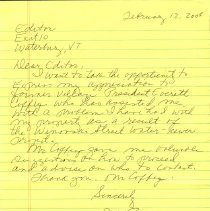 February 17, 2008
Editor
Exit 10
Waterbury, VT
Dear Editor,
I want to take the opportunity to
express my appreciation to
Village President Everett
Coffey who has assisted me
with a problem I have had with
my property as a result of
the Winooski Street Water-Sewer
Project.
Mr. Coffey gave me valuable
directions on how to proceed
and advise on who to contact.
Thank you Mr. Coffey.
Sincerely,